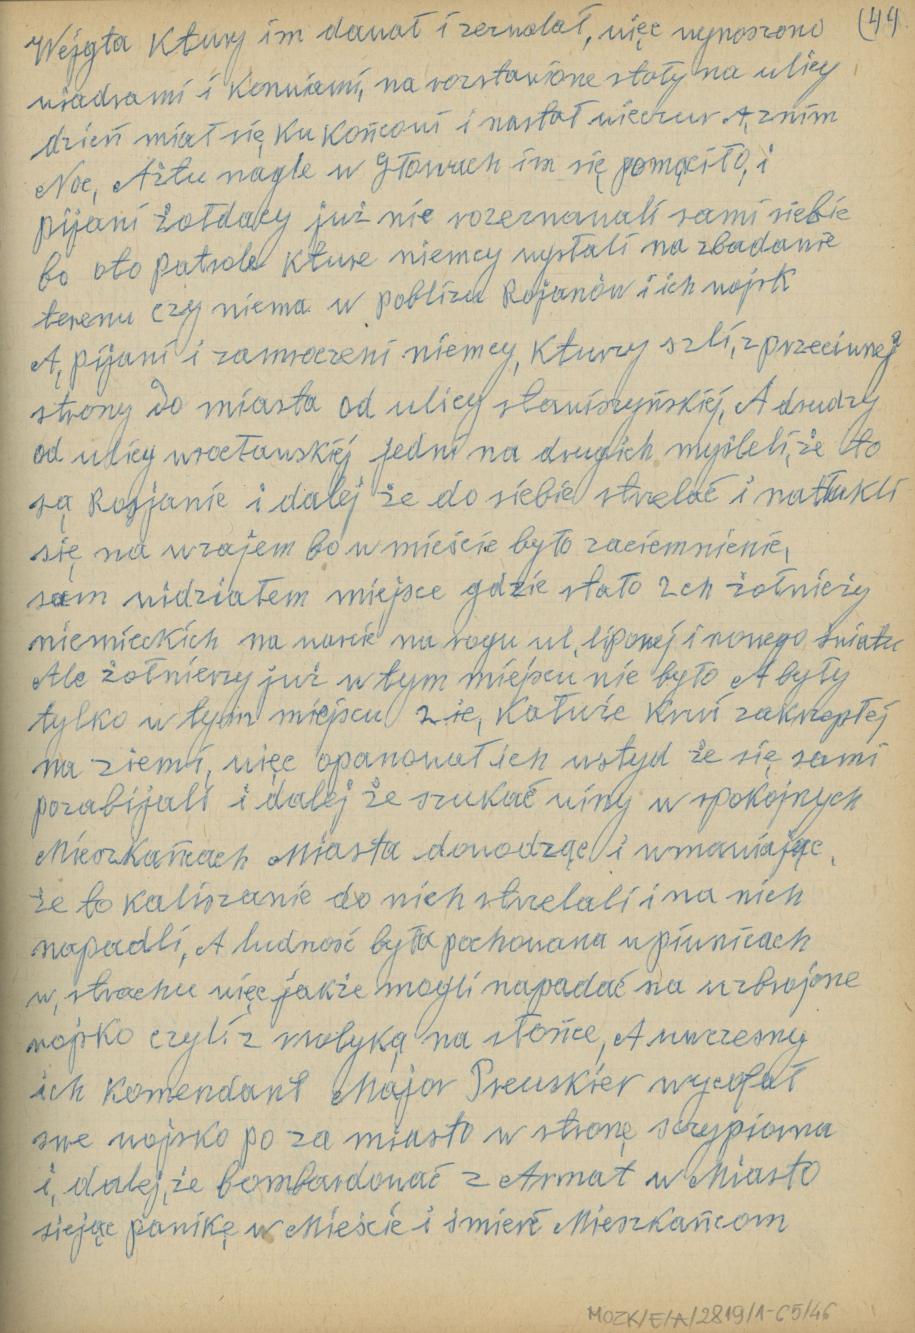 (44
Wejgta Ktury im dawał i zezwolał, więc wynoszono
wiadrami i Konwiami, na rozstawione stoły na ulicy
dzień miał się, Ku Końcowi i nastał wieczur A, znim
Noc, Ażtu nagle w Głowach im się pomąciło, i
pijani żołdacy już nie rozeznawali sami siebie
bo oto patrole Kture niemcy wysłali na zbadanie
terenu czy niema w pobliżu Rosjanów i ich wojsk
A, pijani i zamroczeni niemcy, Kturzy szli, z przeciwnej
strony do miasta od ulicy stawiszyńskiej, A drudzy
od ulicy wrocławskiej jedni na drugich myśleli, że to
są Rosjanie i dalej że do siebie strzelać i natłukli
się, na wzajem bo w mieście było zaciemnienie,
sam widziałem miejsce gdzie stało 2ch żołnieży
niemieckich na warcie na rogu ul, lipowej i nowego światu
Ale żołnierzy już w tym miejscu nie było A były
tylko w tym miejscu 2-ie, Kałuże Krwi zakrzepłej
na ziemi, więc opanował ich wstyd że się sami
pozabijali i dalej że szukać winy w spokojnych
Mieszkańcach Miasta dowodząc i wmawiając,
że to kaliszanie do nich strzelali i na nich
napadli, A ludność była pochowana w piwnicach
w, strachu więc jakże mogli napadać na uzbrojone
wojsko czyli z motyką na słońce, A uwczesny
ich Komendant Major Preuskier wycofał
swe wojsko po za miasto w stronę szczypiorna
i, dalej, że bombardować z Armat w Miasto
siejąc panikę w Mieście i śmierć Mieszkańcom
MOZK/E/A/2819/1-65/46